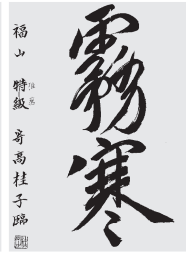 霧寒
福山 特級 高桂子臨